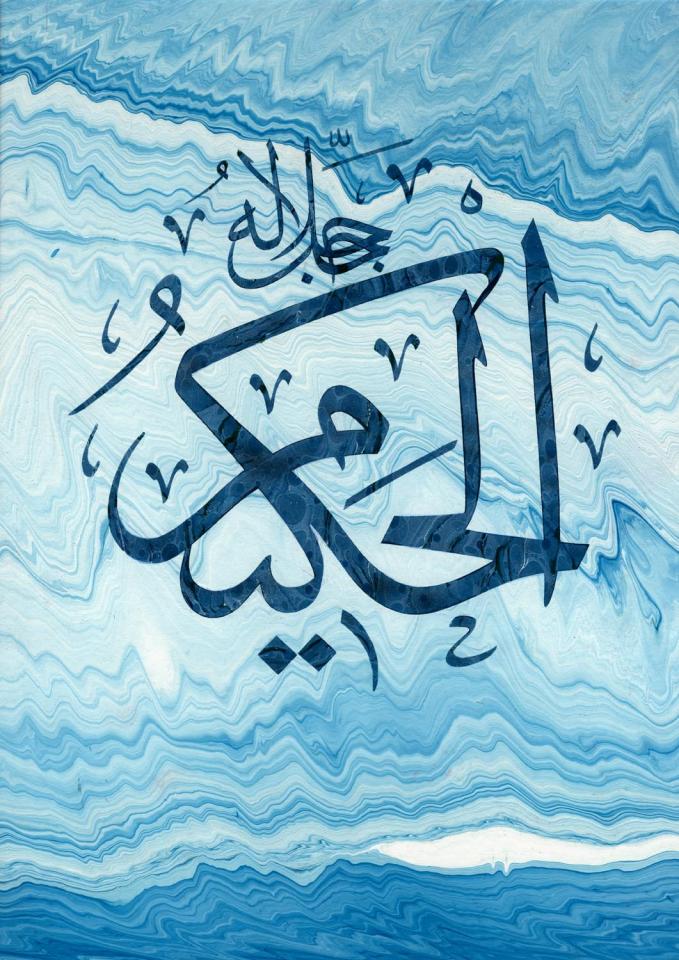 جل جلاله
الحكيم